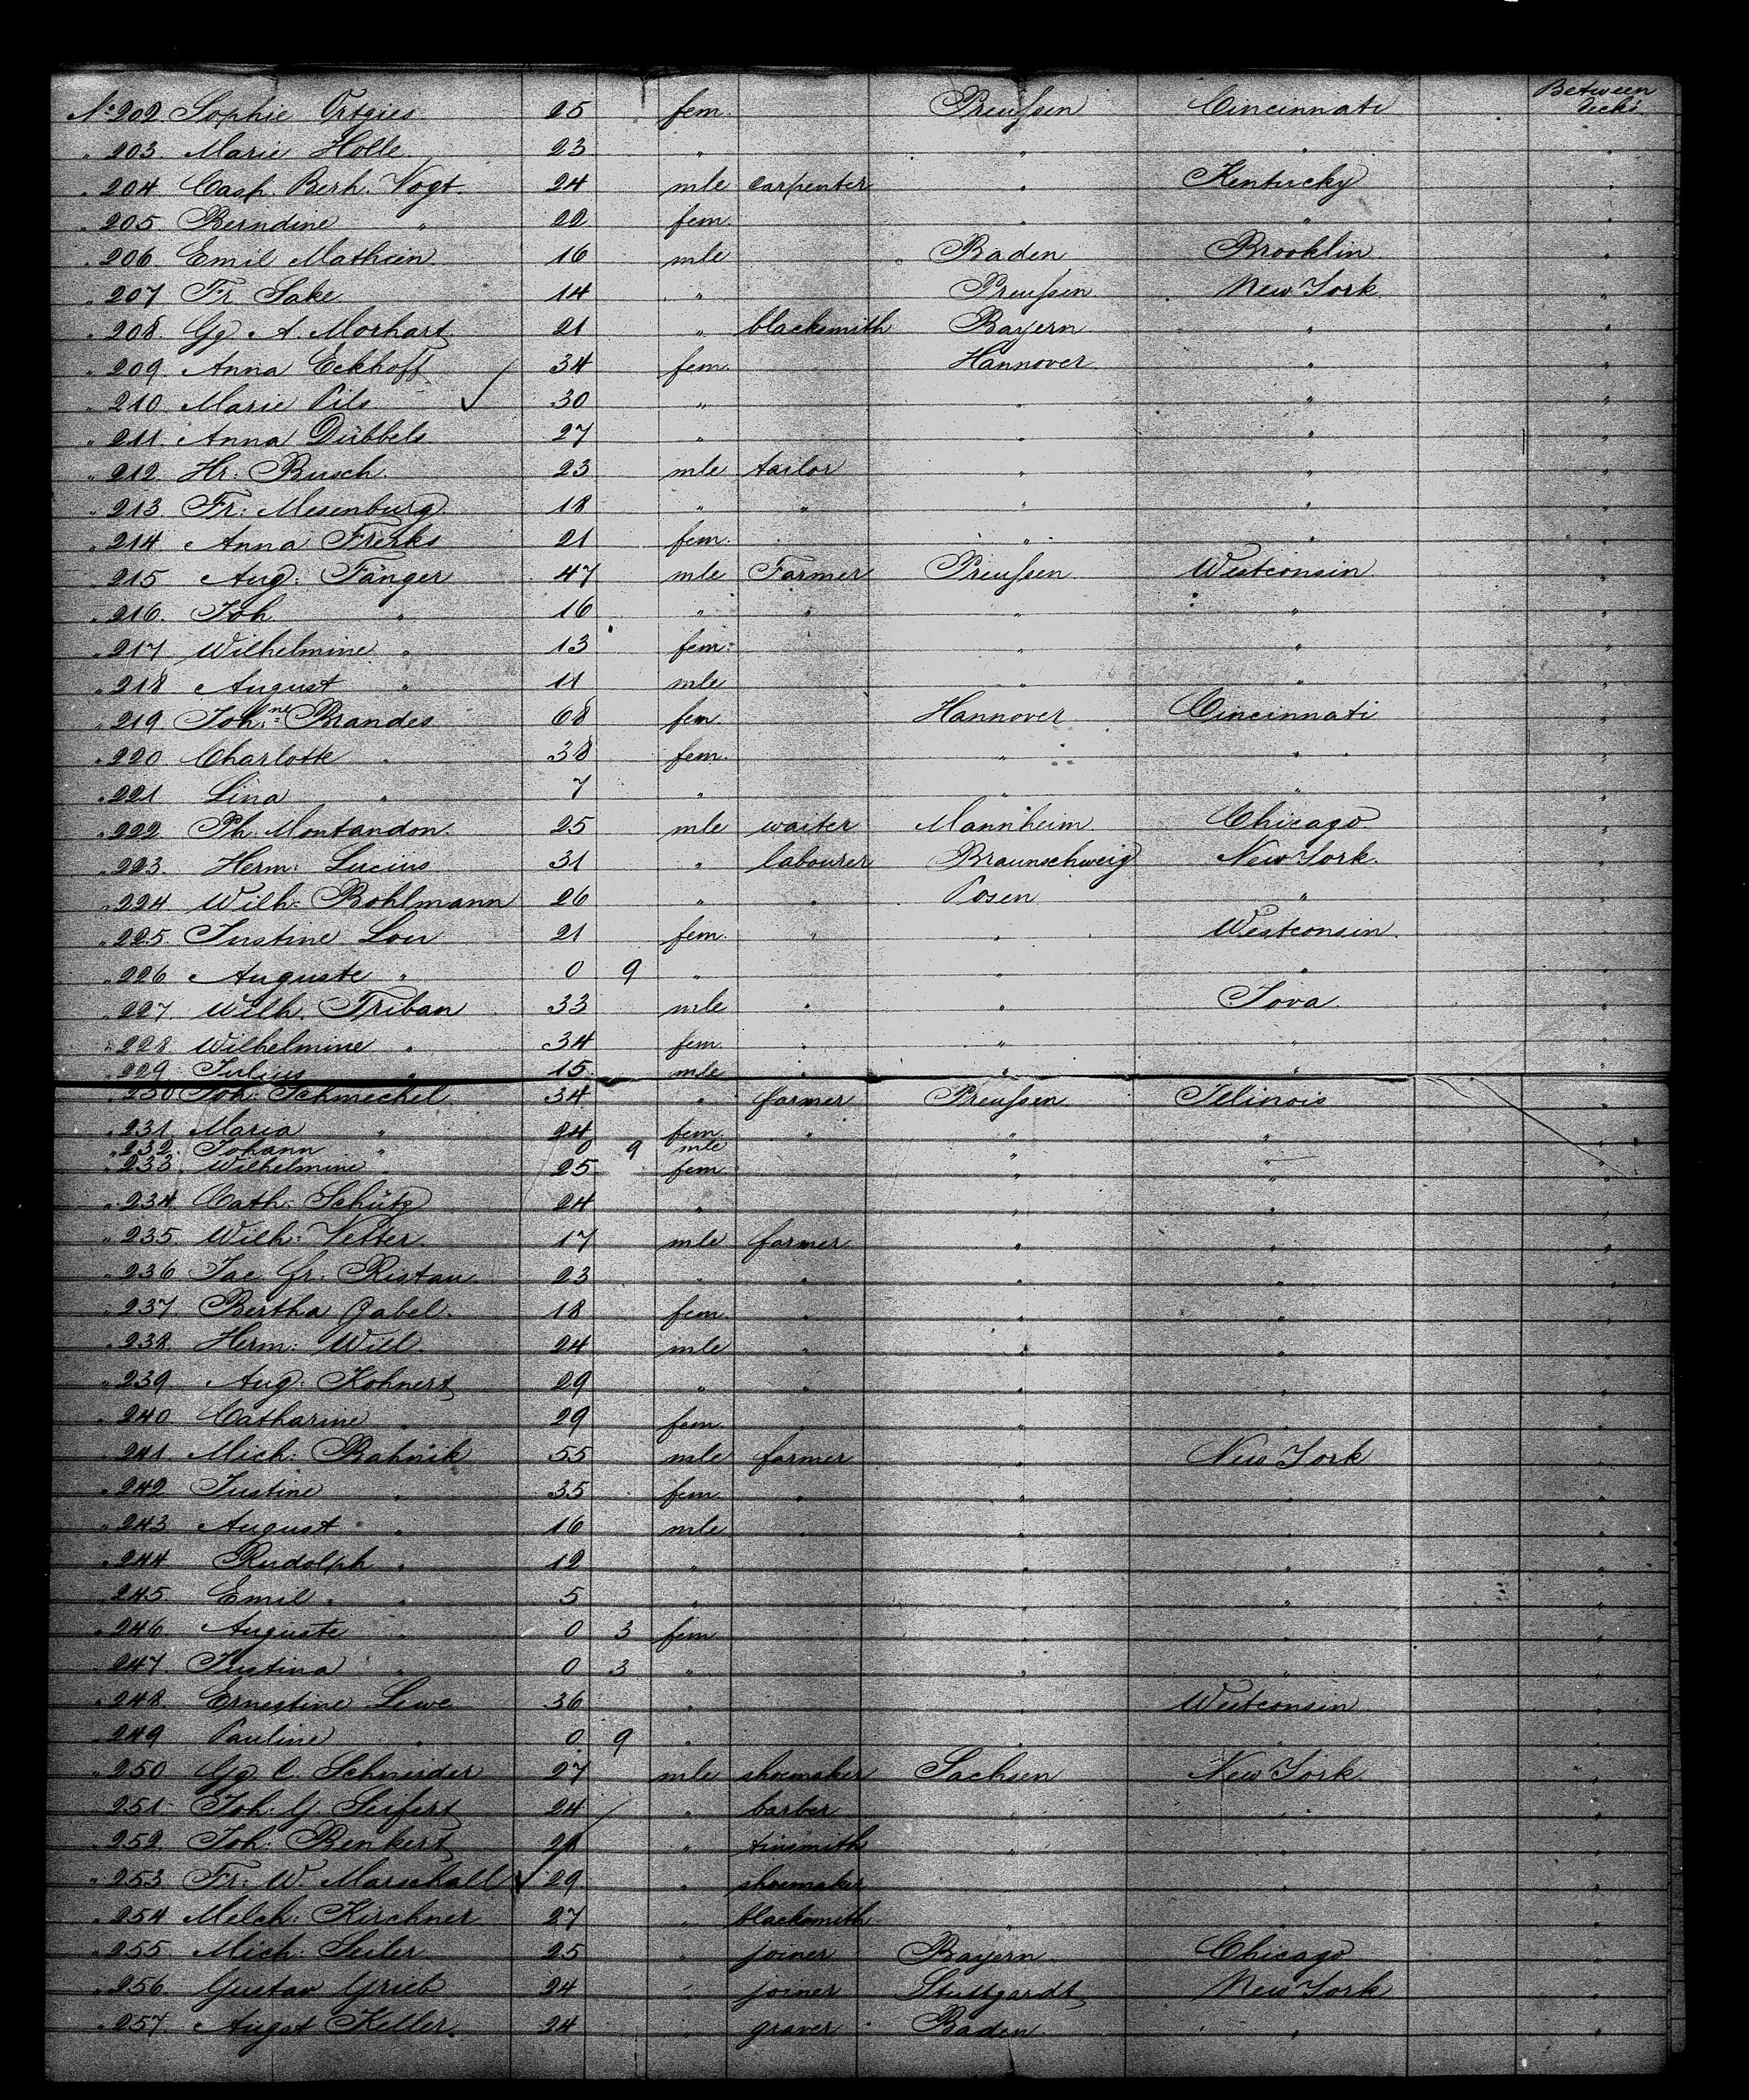 Between
No 202. Sophie Ortgies 25 fem. Preußen Cincinnati Decks
" 203. Marie Holle 23 " " " "
" 204 Casp. Berh. Vogt 24 mle carpenter " Kentucky "
" 205 Berndine " 22 fem. " " "
" 206 Emil Mathien 16 mle Baden Brooklin "
" 207 Fr Sake 14 " Preußen New York "
" 208. Gg. A. Morhart 21 " blacksmith Bayern " "
" 209. Anna Eckhoff 34 fem. Hannover " "
" 210 Marie Pils 30 " " " "
" 211 Anna Dübbels 27 " " " "
" 212. Hr: Busch 23 mle tailor " " "
" 213. Fr: Mesenburg 18 " " " " "
" 214. Anna Frerks 21 fem. " " "
" 215 Aug: Fänger 47 mle Farmer Preußen Westconsin "
" 216. Joh " 16 " " " " "
" 217 Wilhelmine " 13 fem: " " "
" 218 August " 11 mle " " "
" 219. Joh:ne Brandes 68 fem Hannover Cincinnati "
" 220 Charlotte " 38 fem. " " "
" 221 Lina " 7 " " " "
" 222 Ph. Montandon 25 mle waiter Mannheim Chicago "
" 223. Herm: Lucius 31 " labourer Braunschweig New York. "
" 224. Wilh: Bohlmann 26 " " Posen " "
" 225. Justine 21 fem. " " Westconsin. "
" 226 Auguste " 0 9 " " " "
" 227. Wilh. Triban 33 mle " " Iova "
" 228. Wilhelmine " 34 fem " " " "
" 229. Julius " 15 mle " " " "
" 230 Joh: Schmechel 34 " farmer Preußen Illinois "
" 231 Maria " 24 fem " " " "
" 232. Johann " 0 9 mle " " "
" 233. Wilhelmine " 25 fem " " "
" 234 Cath: Schütz 24 " " " "
" 235. Wilh: Vetter 17 mle farmer " " "
" 236 Jac. Gr: Ristau 23 " " " " "
" 237. Bertha Gabel. 18 fem. " " " "
" 238. Herm: Will 24 mle " " " "
" 239. Aug: Kohnert 29 " " " " "
" 240 Catharine " 29 fem " " " "
" 241. Mich: Bahnik 55 mle farmer " New York "
" 242. Justine " 35 fem " " " "
" 243 August " 16 mle " " " "
" 244 Rudolph " 12 " " " "
" 245. Emil " 5 " " " "
" 246. Auguste " 0 3 fem " " "
" 247. Justina " 0 3 " " " "
" 248. Ernestine Lewe 36 " " Westconsin "
" 249 Pauline " 0 9 " " " "
" 250 Gg. C. Schneider 27 mle shoemaker Sachsen New York "
" 251 Joh: G Seifert 24 " barber " " "
" 252. Joh: Benkert " tinsmith " " "
" 253 Fr: W. Marschall 29 " shoemaker " " "
" 254 Melch: Kirchner 27 " blacksmith " " "
" 255. Mich: Seiler 25 " joiner Bayern Chicago "
" 256. Gustav Grieb 24 " joiner Stuttgardt New York "
" 257. Augst Keller. 24 " graver Baden " "